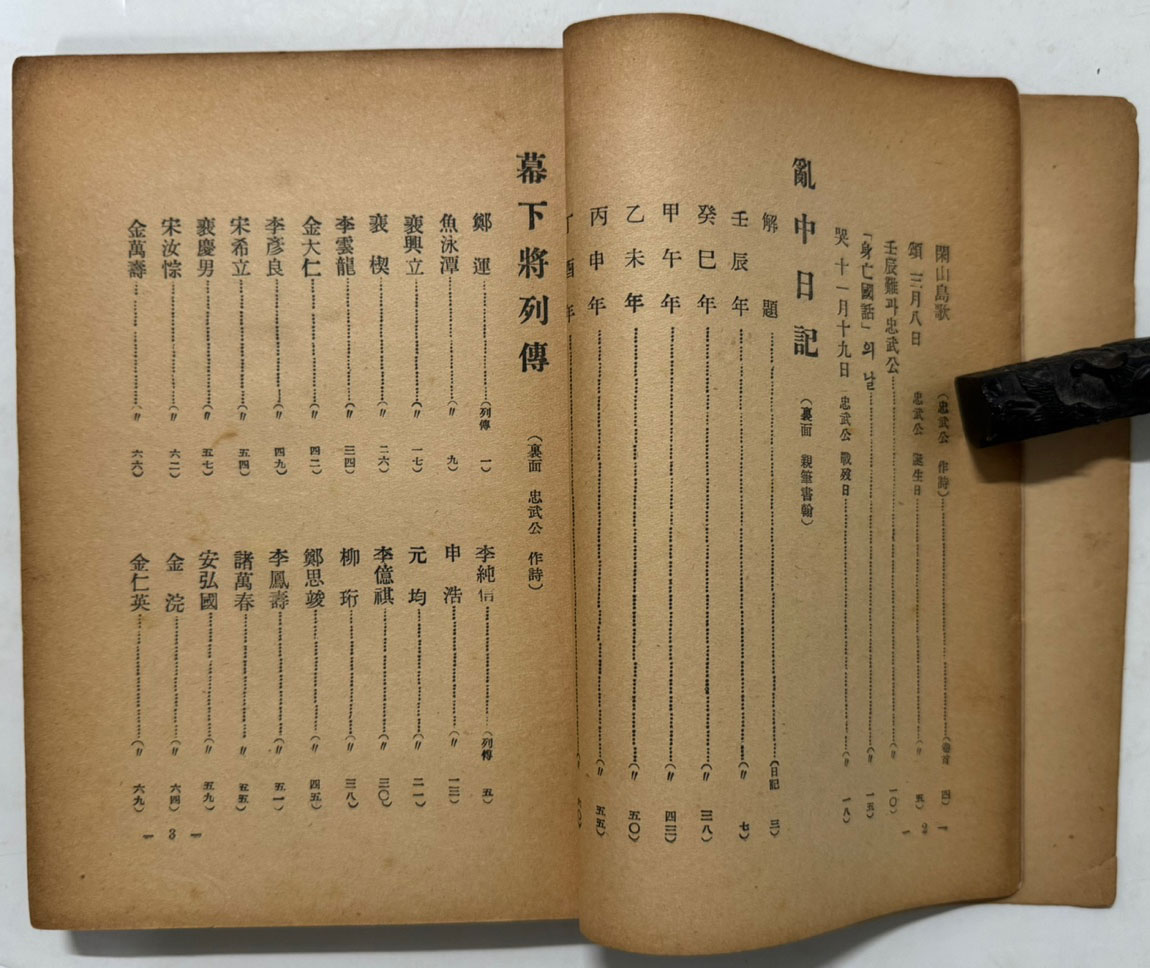 閑山島歌 (忠武公 作詩)……(卷首 四)
頌 三月八日 忠武公 誕生日……(〃 五)
壬辰難과忠武公……(〃 一〇)
「身亡國話」의 날……(〃 一五)
哭 十一月十九日 忠武公 戰歿日……(〃 一八)
亂中日記 (裏面 親筆書翰)
解題……(日記 三)
壬辰年……(〃 七)
癸巳年……(〃 三八)
甲午年……(〃 四三)
乙未年……(〃 五〇)
丙申年……(〃 五五)
丁酉年……
— 2 —
幕下將列傳 (裏面 忠武公 作詩)
鄭運……(列傳 一)
魚泳潭……(〃 九)
裵興立……(〃 一七)
裵楔……(〃 二六)
李雲龍……(〃 三四)
金大仁……(〃 四二)
李彦良……(〃 四九)
宋希立……(〃 五四)
裵慶男……(〃 五七)
宋汝悰……(〃 六二)
金萬壽……(〃 六六)
李純信……(列傳 五)
申浩……(〃 一三)
元均……(〃 二一)
李億祺……(〃 三〇)
柳珩……(〃 三八)
鄭思竣……(〃 四五)
李鳳壽……(〃 五一)
諸萬春……(〃 五五)
安弘國……(〃 五九)
金浣……(〃 六四)
金仁英……(〃 六九)
— 3 —